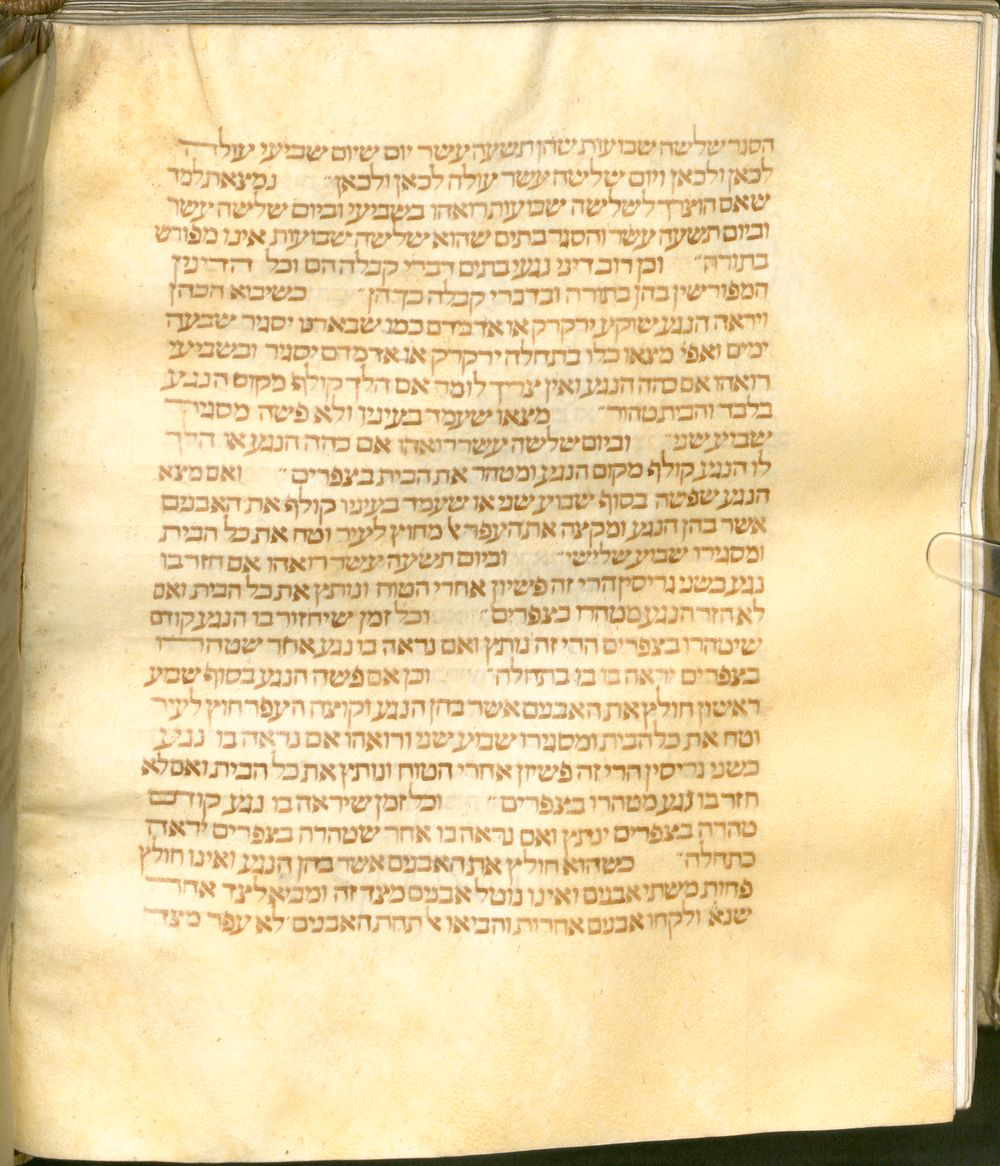 הסגר שלשה שבועות שהן תשעה עשר יום שיום שביעי עולה
לכאן ולכאן ויום שלישה עשר עולה לכאן ולכאן״ נמצאת למד
שאם הוצרך לשלישה שבועות רואהו בשביעי וביום שלישה עשר
וביום תשעה עשר והסגר בתים שהוא שלישה שבועות אינו מפורש
בתורה״ וכן רוב דיני נגעי בתים דברי קבלה הם וכל הדינין
המפורשין בהן בתורה ובדברי קבלה כך הן״ כשיבוא הכהן
ויראה הנגע שוקע ירקרק או אדמדם כמו שבארנו יסגיר שבעה
ימים ואפי׳ מצאו כולו בתחלה ירקרק או אדמדם יסגיר ובשביעי
רואהו אם כהה הנגע ואין צריך לומר אם הלך קולף מקום הנגע
בלבד והבית טהור״ מצאו שעמד בעיניו ולא פישה מסגיר
שביע שני״ וביום שלשה עשר רואהו אם כהה הנגע או הלך
לו הנגע קולף מקום הנגע ומטהר את הבית בצפרים״ ואם מצא
הנגע שפשה בסוף שבוע שני או שעמד בעיניו קולף את האבנים
אשר בהן הנגע ומקצה את העפר אל מחוץ לעיר וטח את כל הבית
ומסגירו שבוע שלישי״ וביום תשעה עשר רואהו אם חזר בו
נגע בשני גריסין הרי זה פשיון אחרי הטוח ונותץ את כל הבית ואם
לא חזר הנגע מטהרו בצפרים״ וכל זמן שיחזור בו הנגע קודם
שיטהרו בצפרים ההרי זה נותץ ואם נראה בו נגע אחר שטהרו
בצפרים יראה בו בו בתחלה״ וכן אם פשה הנגע בסוף שבוע
ראשון חולץ את האבנים אשר בהן הנגע וקוצה העפר חוץ לעיר
וטח את כל הבית ומסגירו שבוע שני ורואהו אם נראה בו נגע
בשני גריסין הרי זה פשיון אחרי הטוח ונותץ את כל הבית ואם לא
חזר בו נגע מטהרו בצפרים״ וכל זמן שיראה בו נגע קודם
טהרה בצפרים ינתץ ואם נראה בו אחר שטהרה בצפרים יראה
כתחלה״ כשהוא חולץ את האבנים אשר בהן הנגע ואינו חולץ
פחות משתי אבנים ואינו נוטל אבנים מצד זה ומביא לצד אחר
שנא׳ ולקחו אבנים אחרות והביאו אל תחת האבנים לא עפר מצד